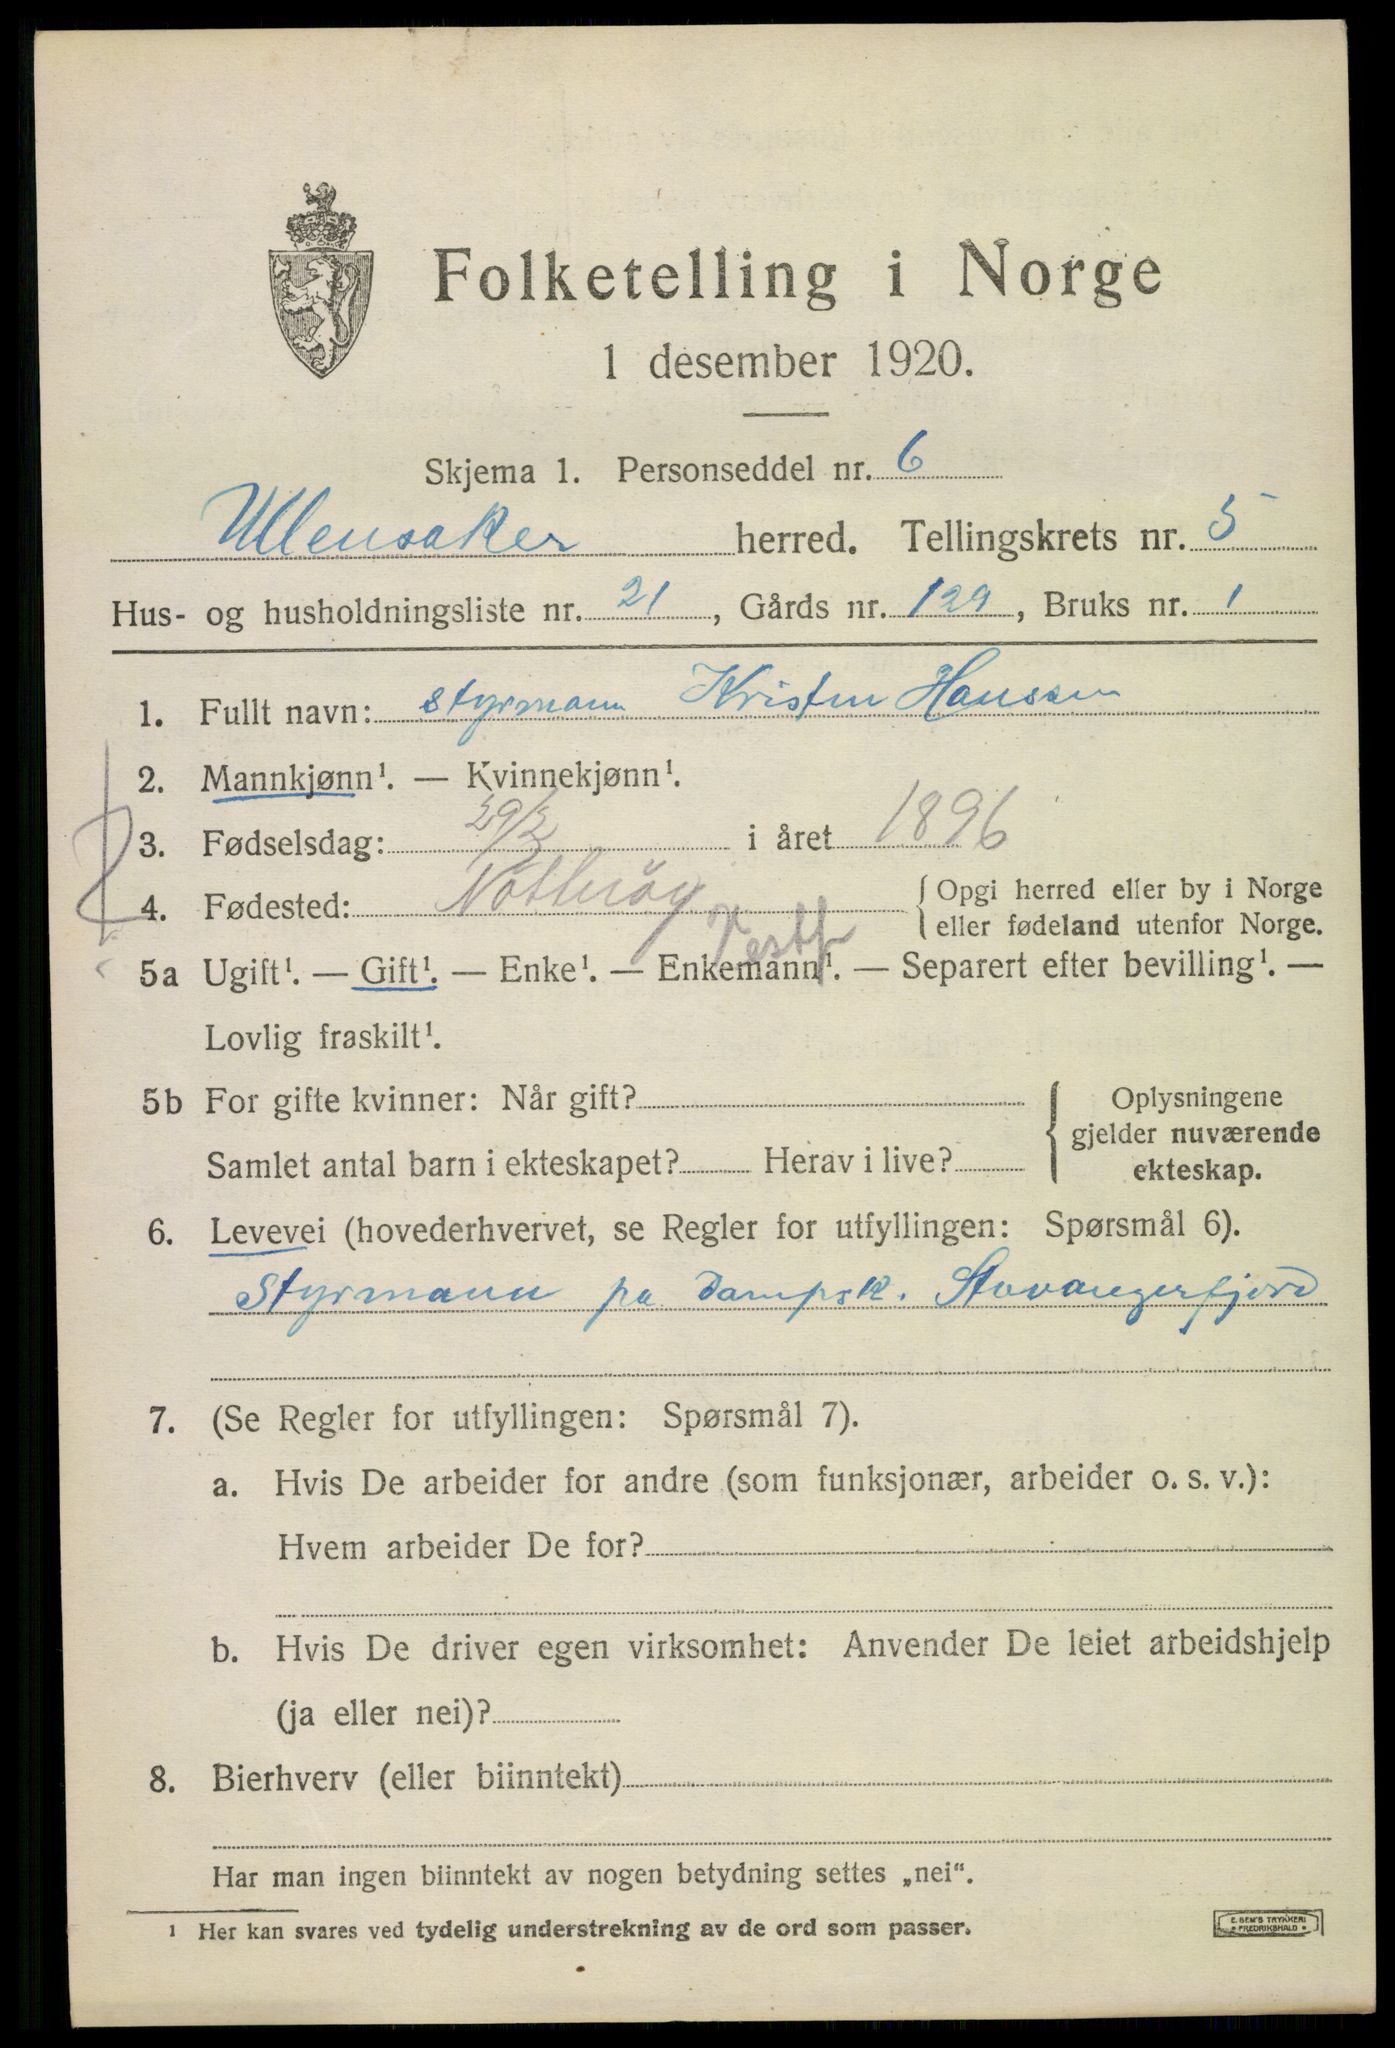 Folketelling i Norge
1 desember 1920.
Skjema 1. Personseddel nr. 6
Ullensaker herred. Tellingskrets nr. 5
Hus- og husholdningsliste nr. 21, Gårds nr. 129, Bruks nr. 1
1. Fullt navn: styrmann Kristen Hanssen
2. Mannkjønn¹. — Kvinnekjønn¹.
3. Fødselsdag: 29/2 i året 1896
4. Fødested: Nøtterøy {Opgi herred eller by i Norge
eller fødeland utenfor Norge.
Vestf
5a Ugift¹. — Gift¹. — Enke¹. — Enkemann¹. — Separert efter bevilling¹. —
Lovlig fraskilt¹.
5b For gifte kvinner: Når gift?
Samlet antal barn i ekteskapet? Herav i live?
{Oplysningene
gjelder nuværende
ekteskap.
6. Levevei (hovederhvervet, se Regler for utfyllingen: Spørsmål 6).
Styrmann pa Dampsk. Stavangerfjord
7. (Se Regler for utfyllingen: Spørsmål 7).
a. Hvis De arbeider for andre (som funksjonær, arbeider o. s. v.):
Hvem arbeider De for?
b. Hvis De driver egen virksomhet: Anvender De leiet arbeidshjelp
(ja eller nei)?
8. Bierhverv (eller biinntekt)
Har man ingen biinntekt av nogen betydning settes „nei“.
¹ Her kan svares ved tydelig understrekning av de ord som passer.
E. SEM'S TRYKKERI
• FREDRIKSHALD •